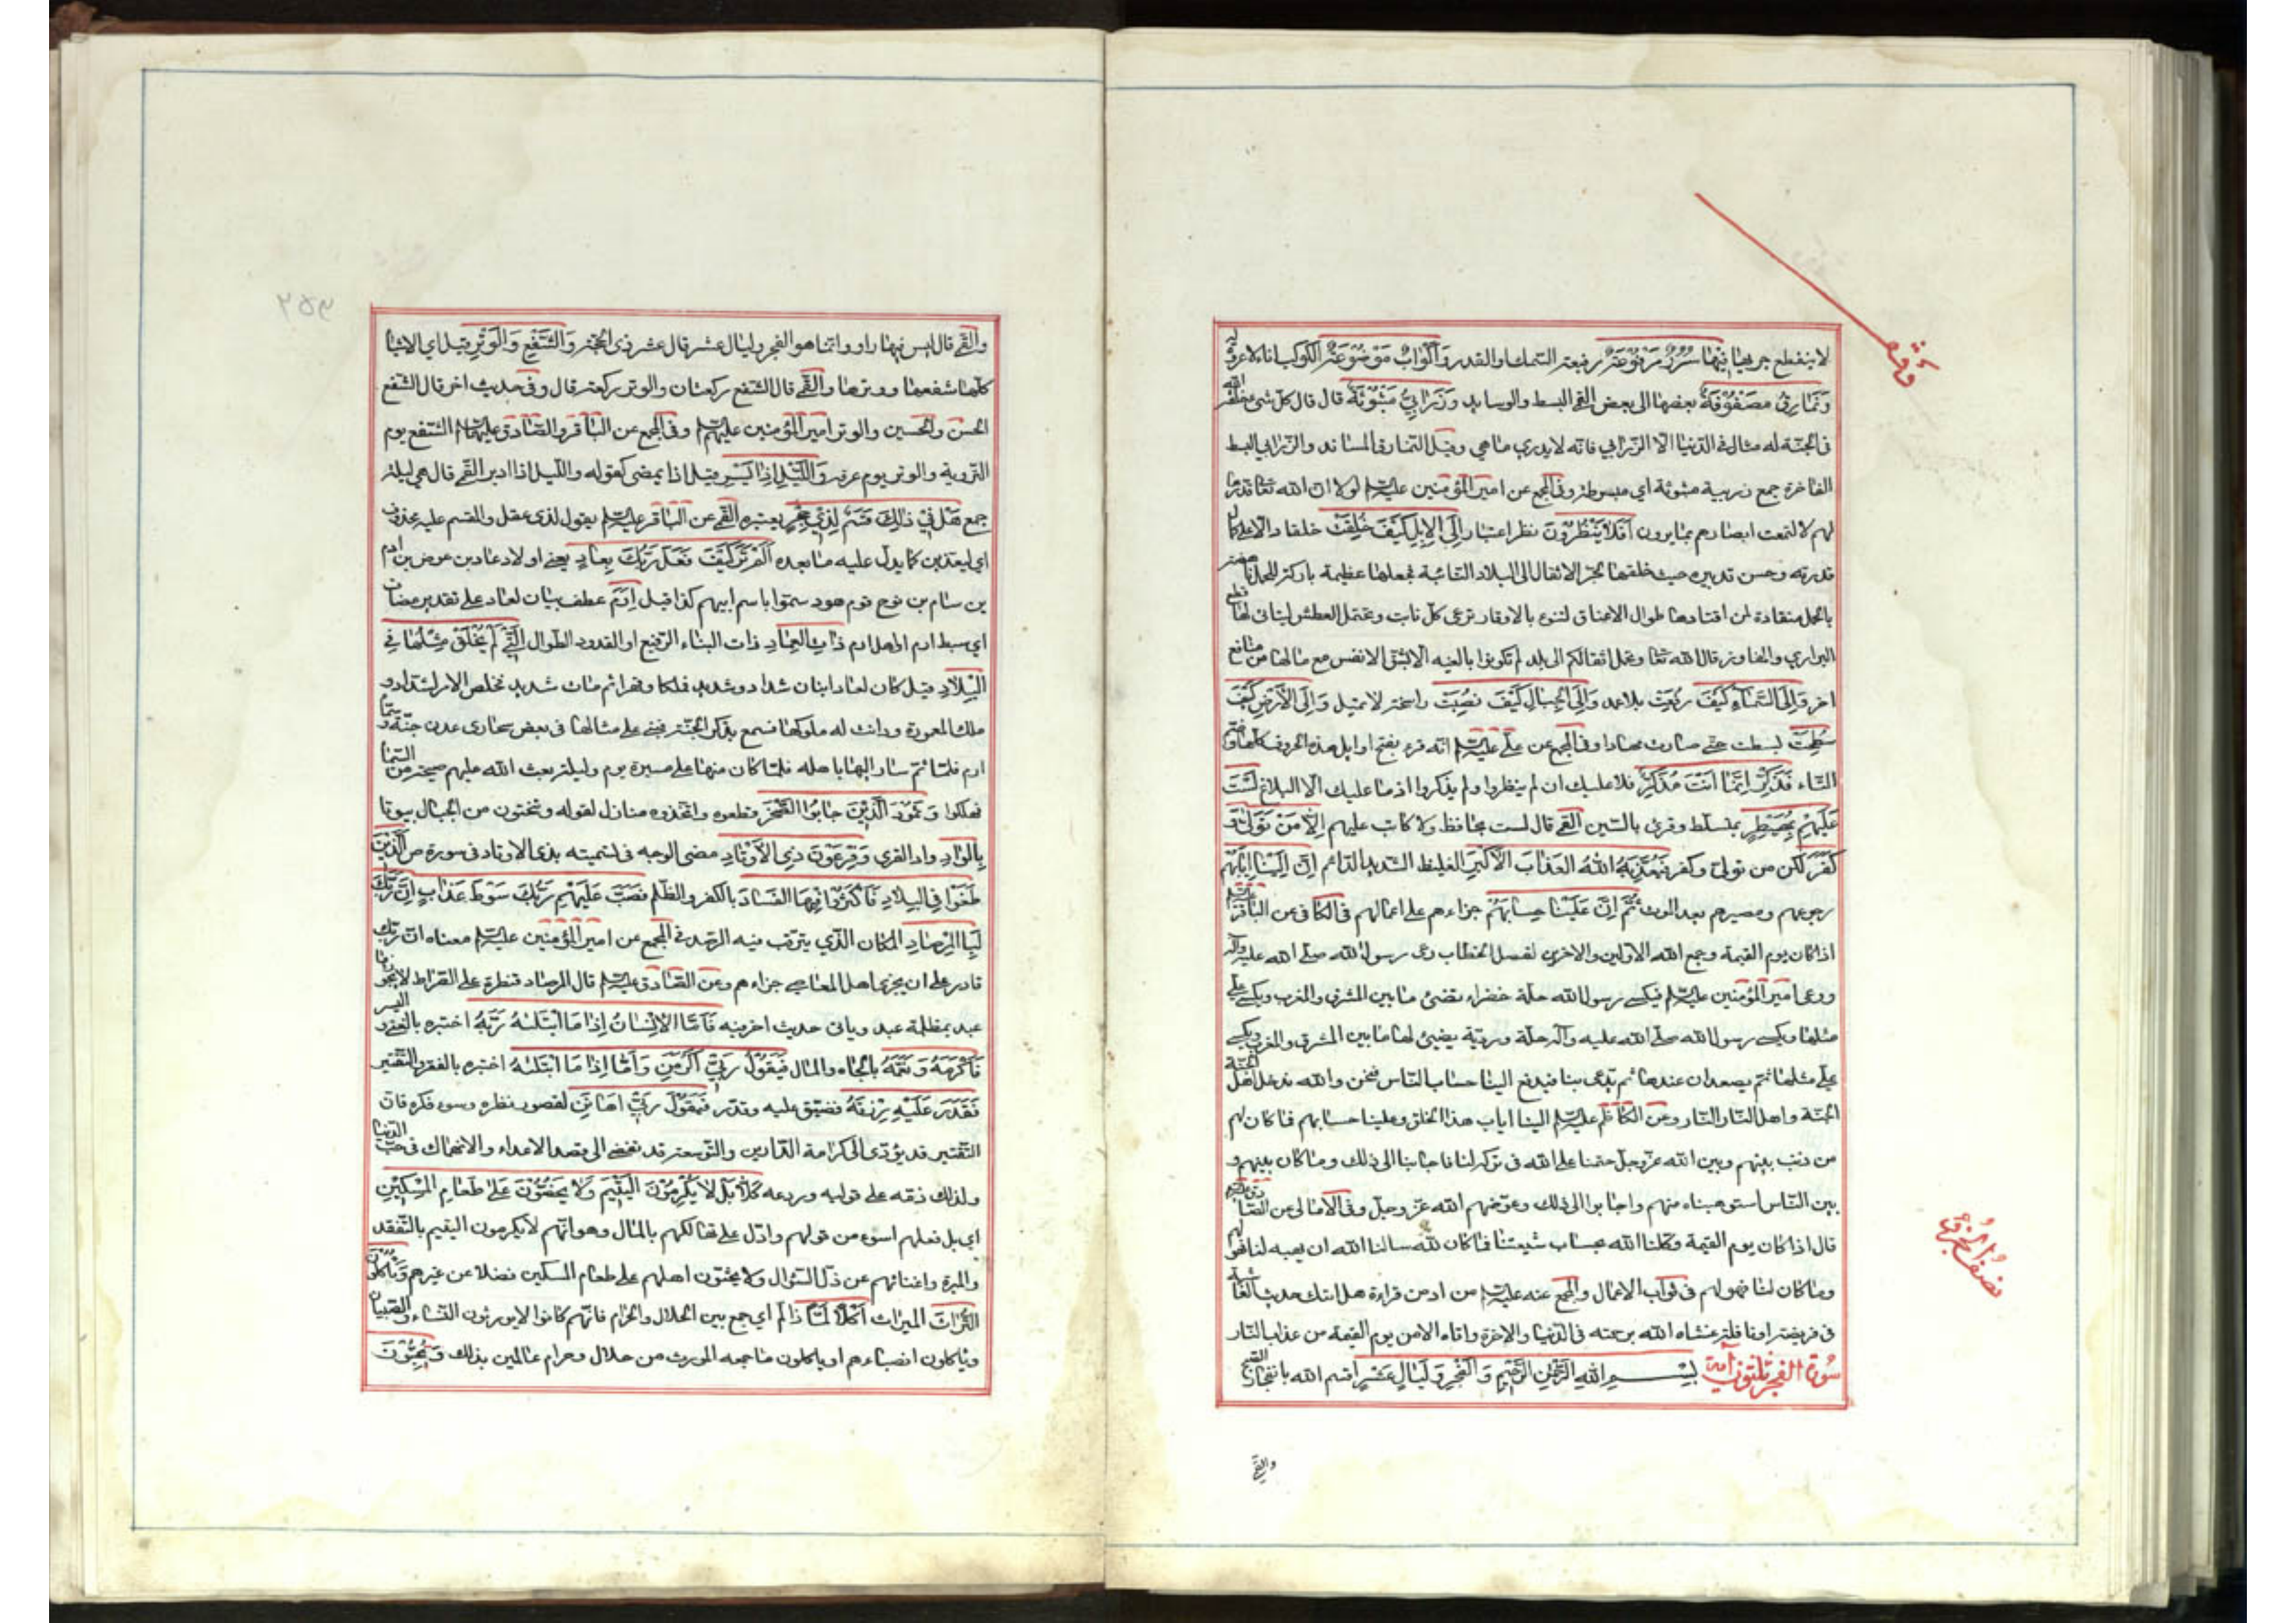 لا ينقطع جريها فيها سرر مرفوعة رفيعة السمك او القدر واكواب موضوعة الكوب اناء لا عروة له
ونمارق مصفوفة بعضها الى بعض القمي البسط والوسايد وزرابي مبثوثة قال قال كل شي خلقه الله
فى الجنة له مثال فى الدنيا الا الزرابي فانه لا يدري ما هي وقيل النمارق المساند والزرابي البسط
الفاخرة جمع زربية مبثوثة اي مبسوطة وفى المجمع عن امير المؤمنين عليه السلام لولا ان الله تعا قدرها
لهم لالتمعت ابصارهم بما يرون افلا ينظرون نظر اعتبار الى الابل كيف خلقت خلقا دالا على كمال
قدرته وحسن تدبيره حيث خلقها لجر الاثقال الى البلاد النائية فجعلها عظيمة باركة للحمل ناهضة
بالحمل منقادة لمن اقتادها طوال الاعناق لتنوء بالاوقار ترعى كل نابت وتحتمل العطش ليتاتى لها قطع
البراري والمفاوز قال الله تعا وتحمل اثقالكم الى بلد لم تكونوا بالغيه الا بشق الانفس مع ما لها من منافع
اخر والى السماء كيف رفعت بلا عمد والى الجبال كيف نصبت راسخة لا تميل والى الارض كيف
سطحت بسطت حتى صارت مهادا وفى المجمع عن علي عليه السلام انه قرء بفتح اوايل هذه الحروف كلها وضم
التاء فذكر انما انت مذكر فلا عليك ان لم ينظروا ولم يذكروا اذ ما عليك الا البلاغ لست
عليهم بمصيطر بمتسلط وقرئ بالسين القمي قال لست بحافظ ولا كاتب عليهم الا من تولى و
كفر لكن من تولى وكفر فيعذبه الله العذاب الاكبر الغليظ الشديد الدائم ان الينا ايابهم
رجوعهم ومصيرهم بعد الموت ثم ان علينا حسابهم جزاءهم على اعمالهم فى الكافى عن الباقر عليه السلام
اذا كان يوم القيمة وجمع الله الاولين والاخرين لفصل الخطاب دعى رسول الله صلى الله عليه واله
ودعى امير المؤمنين عليه السلام فيكسى رسول الله حلة خضراء تضئ ما بين المشرق والمغرب ويكسى علي
مثلها ويكسى رسول الله صلى الله عليه وآله حلة وردية يضيئ لها ما بين المشرق والمغرب ويكسى
علي مثلها ثم يصعدان عندها ثم يدعى بنا فيدفع الينا حساب الناس فنحن والله ندخل اهل الجنة
الجنة واهل النار النار وعن الكاظم عليه السلام الينا اياب هذا الخلق وعلينا حسابهم فما كان لهم
من ذنب بينهم وبين الله عز وجل حتمنا على الله فى تركه لنا فاجابنا الى ذلك وما كان بينهم و
بين الناس استوهبناه منهم واجابوا الى ذلك وعوضهم الله عز وجل وفى الامالى عن الصادق عليه السلام
قال اذا كان يوم القيمة وكلنا الله بحساب شيعتنا فما كان لله سالنا الله ان يهبه لنا فهو لهم
وما كان لنا فهو لهم فى ثواب الاعمال والمجمع عنه عليه السلام من ادمن قراءة هل اتيك حديث الغاشية
فى فريضة او نافلة غشاه الله برحمته فى الدنيا والاخرة واتاه الامن يوم القيمة من عذاب النار
سورة الفجر ثلثون آية بسم الله الرحمن الرحيم والفجر وليال عشر اقسم الله بانفجار الصبح
والقمي
نصف الحزب
والقمي قال ليس فيها واو وانما هو الفجر وليال عشر قال عشر ذى الحجة والشفع والوتر قيل اي الاشيا
كلها شفعها ووترها والقمي قال الشفع ركعتان والوتر ركعة قال وفى حديث اخر قال الشفع
الحسن والحسين والوتر امير المؤمنين عليهم السلام وفى المجمع عن الباقر والصادق عليهما السلام الشفع يوم
التروية والوتر يوم عرفة والليل اذا يسر قيل اذا يمضى كقوله والليل اذا ادبر القمي قال هى ليلة
جمع هل في ذلك قسم لذي حجر يعتبره القمي عن الباقر عليه السلام يقول لذى عقل والمقسم عليه محذوف
اي ليعذبن كما يدل عليه ما بعده الم تر كيف فعل ربك بعاد يعنى اولاد عاد بن عوص بن ارم
بن سام بن نوح قوم هود سموا باسم ابيهم كذا قيل ارم عطف بيان لعاد على تقدير مضاف
اي سبط ارم او اهل ارم ذات العماد ذات البناء الرفيع او القدود الطوال التي لم يخلق مثلها في
البلاد قيل كان لعاد ابنان شداد وشديد فملكا وقهرا ثم مات شديد فخلص الامر لشداد و
ملك المعمورة ودانت له ملوكها فسمع بذكر الجنة فبنى على مثالها فى بعض صحارى عدن جنة وسماها
ارم فلما تم سار اليها باهله فلما كان منها على مسيرة يوم وليلة بعث الله عليهم صيحة من السماء
فهلكوا وثمود الذين جابوا الصخر قطعوه واتخذوه منازل لقوله وتنحتون من الجبال بيوتا
بالواد واد القرى وفرعون ذي الاوتاد مضى الوجه فى تسميته بذى الاوتاد فى سورة ص الذين
طغوا فى البلاد فاكثروا فيها الفساد بالكفر والظلم فصب عليهم ربك سوط عذاب ان ربك
لبالمرصاد المكان الذي يترقب فيه الرصد فى المجمع عن امير المؤمنين عليه السلام معناه ان ربك
قادر على ان يجزى اهل المعاصي جزاءهم وعن الصادق عليه السلام قال المرصاد قنطرة على الصراط لا يجوزها
عبد بمظلمة عبد وياتى حديث اخر فيه فاما الانسان اذا ما ابتليه ربه اختبره بالغنى واليسر
فاكرمه ونعمه بالجاه والمال فيقول ربي اكرمن واما اذا ما ابتليه اختبره بالفقر والتقتير
فقدر عليه رزقه فضيق عليه وقدر فيقول ربي اهانن لقصور نظره وسوء فكره فان
التقتير قد يؤدى الى كرامة الدارين والتوسعة قد تفضى الى قصد الاعداء والانهماك فى حب الدنيا
ولذلك ذمه على قوليه وردعه كلا بل لا يكرمون اليتيم ولا يحضون على طعام المسكين
اي بل فعلهم اسوء من قولهم وادل على تهالكهم بالمال وهو انهم لا يكرمون اليتيم بالتفقد
والمبرة واغنائهم عن ذل السؤال ولا يحثون اهلهم على طعام المسكين فضلا عن غيرهم وياكلون
التراث الميراث اكلا لما ذا لم اي جمع بين الحلال والحرام فانهم كانوا لا يورثون النساء والصبيان
وياكلون انصباءهم او ياكلون ما جمعه المورث من حلال وحرام عالمين بذلك ويحبون